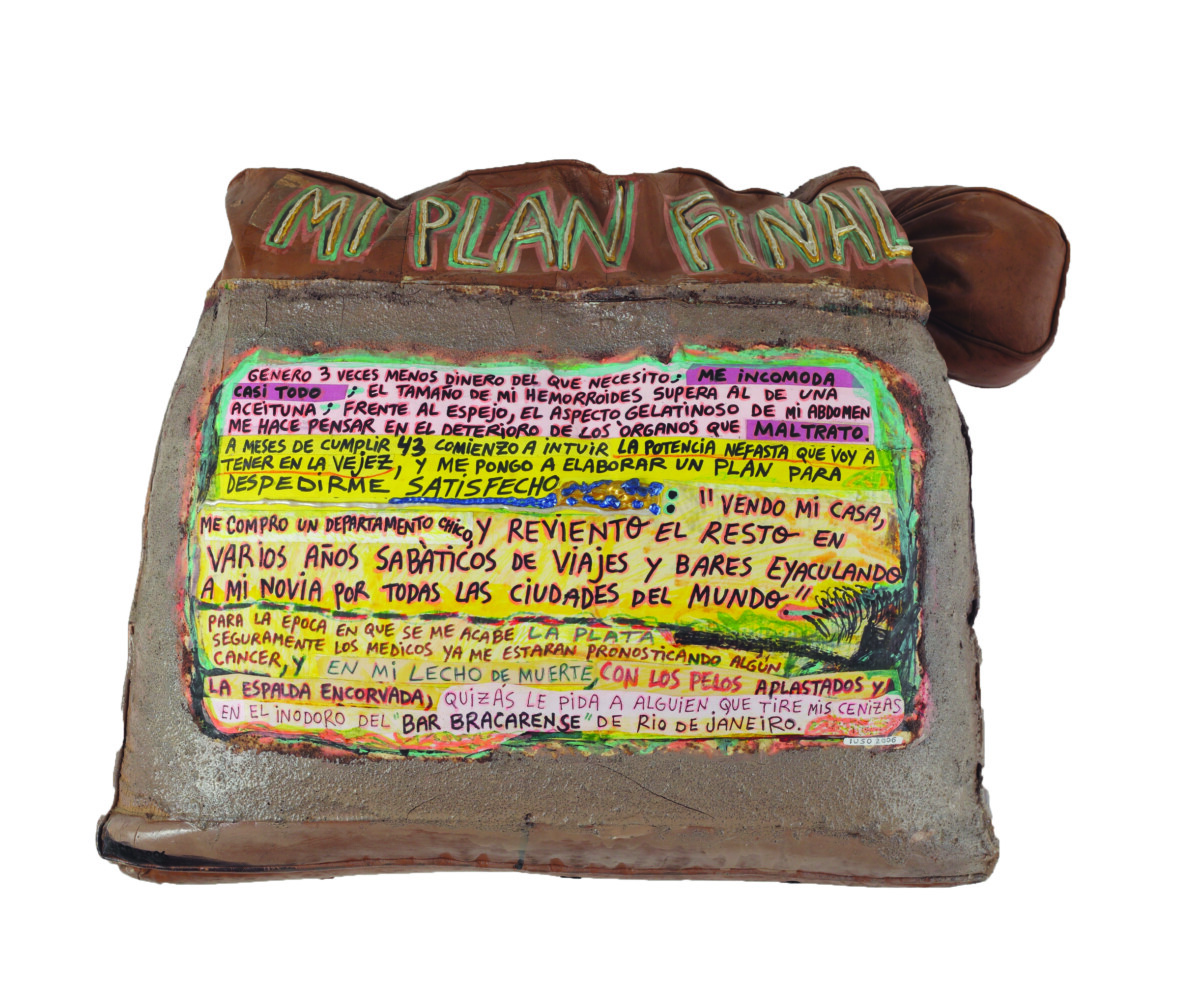 MI PLAN FINAL
GENERO 3 VECES MENOS DINERO DEL QUE NECESITO; ME INCOMODA
CASI TODO ; EL TAMAÑO DE MI HEMORROIDES SUPERA AL DE UNA
ACEITUNA; FRENTE AL ESPEJO, EL ASPECTO GELATINOSO DE MI ABDOMEN
ME HACE PENSAR EN EL DETERIORO DE LOS ORGANOS QUE MALTRATO.
A MESES DE CUMPLIR 43 COMIENZO A INTUIR LA POTENCIA NEFASTA QUE VOY A
TENER EN LA VEJEZ, Y ME PONGO A ELABORAR UN PLAN PARA
DESPEDIRME SATISFECHO :
"VENDO MI CASA,
ME COMPRO UN DEPARTAMENTO CHICO, Y REVIENTO EL RESTO EN
VARIOS AÑOS SABÀTICOS DE VIAJES Y BARES EYACULANDO
A MI NOVIA POR TODAS LAS CIUDADES DEL MUNDO"
PARA LA EPOCA EN QUE SE ME ACABE LA PLATA
SEGURAMENTE LOS MEDICOS YA ME ESTARAN PRONOSTICANDO ALGÚN
CANCER, Y EN MI LECHO DE MUERTE, CON LOS PELOS APLASTADOS Y
LA ESPALDA ENCORVADA, QUIZÁS LE PIDA A ALGUIEN QUE TIRE MIS CENIZAS
EN EL INODORO DEL "BAR BRACARENSE" DE RIO DE JANEIRO.
IUSO 2006